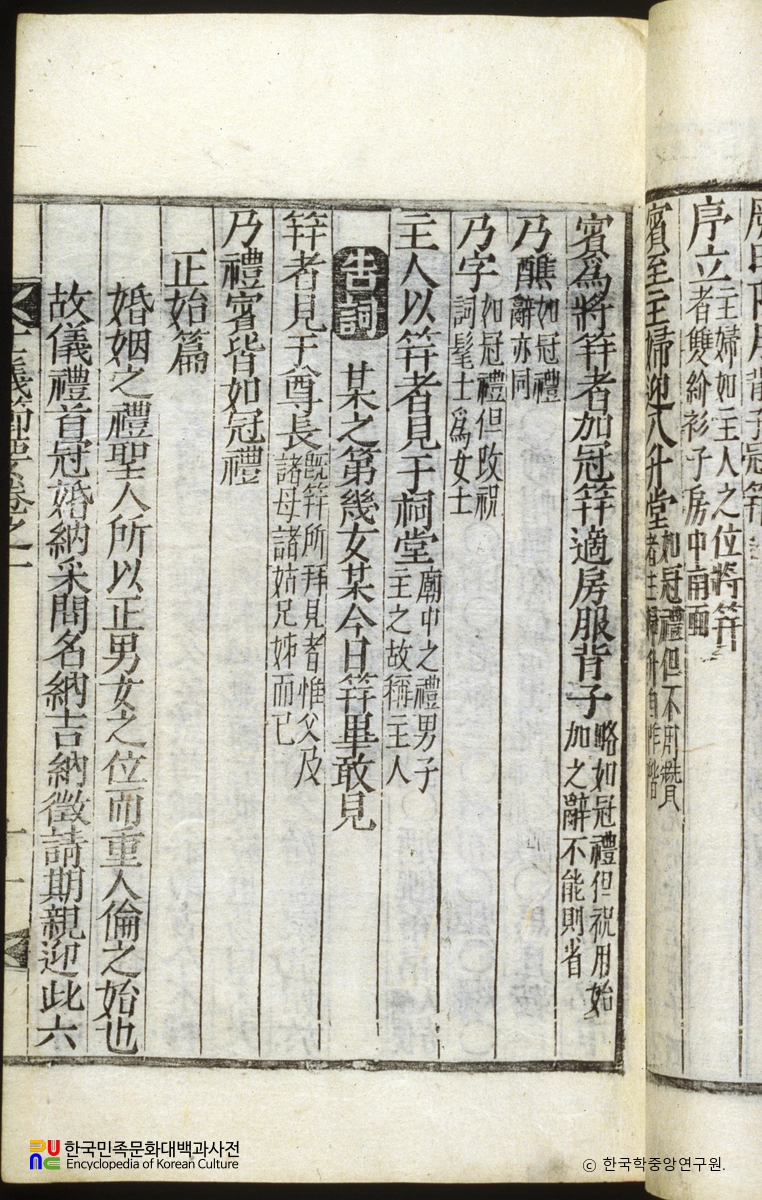 序立主婦如主人之位將笄者雙紒衫子房中南面
賓至主婦迎入升堂如冠禮但不用贊者主婦升自阼階
賓爲將笄者加冠笄適房服背子略如冠禮但祝用始加之辭不能則省
乃醮如冠禮辭亦同
乃字如冠禮但改祝詞髦士爲女士
主人以笄者見于祠堂廟中之禮男子主之故稱主人
告詞 某之第幾女某今日笄畢敢見
笄者見于尊長旣笄所拜見者惟父及諸母諸姑兄姊而已
乃禮賓皆如冠禮
正始篇
婚姻之禮聖人所以正男女之位而重人倫之始也
故儀禮首冠婚納采問名納吉納徵請期親迎此六
한국민족문화대백과사전
Encyclopedia of Korean Culture
© 한국학중앙연구원.